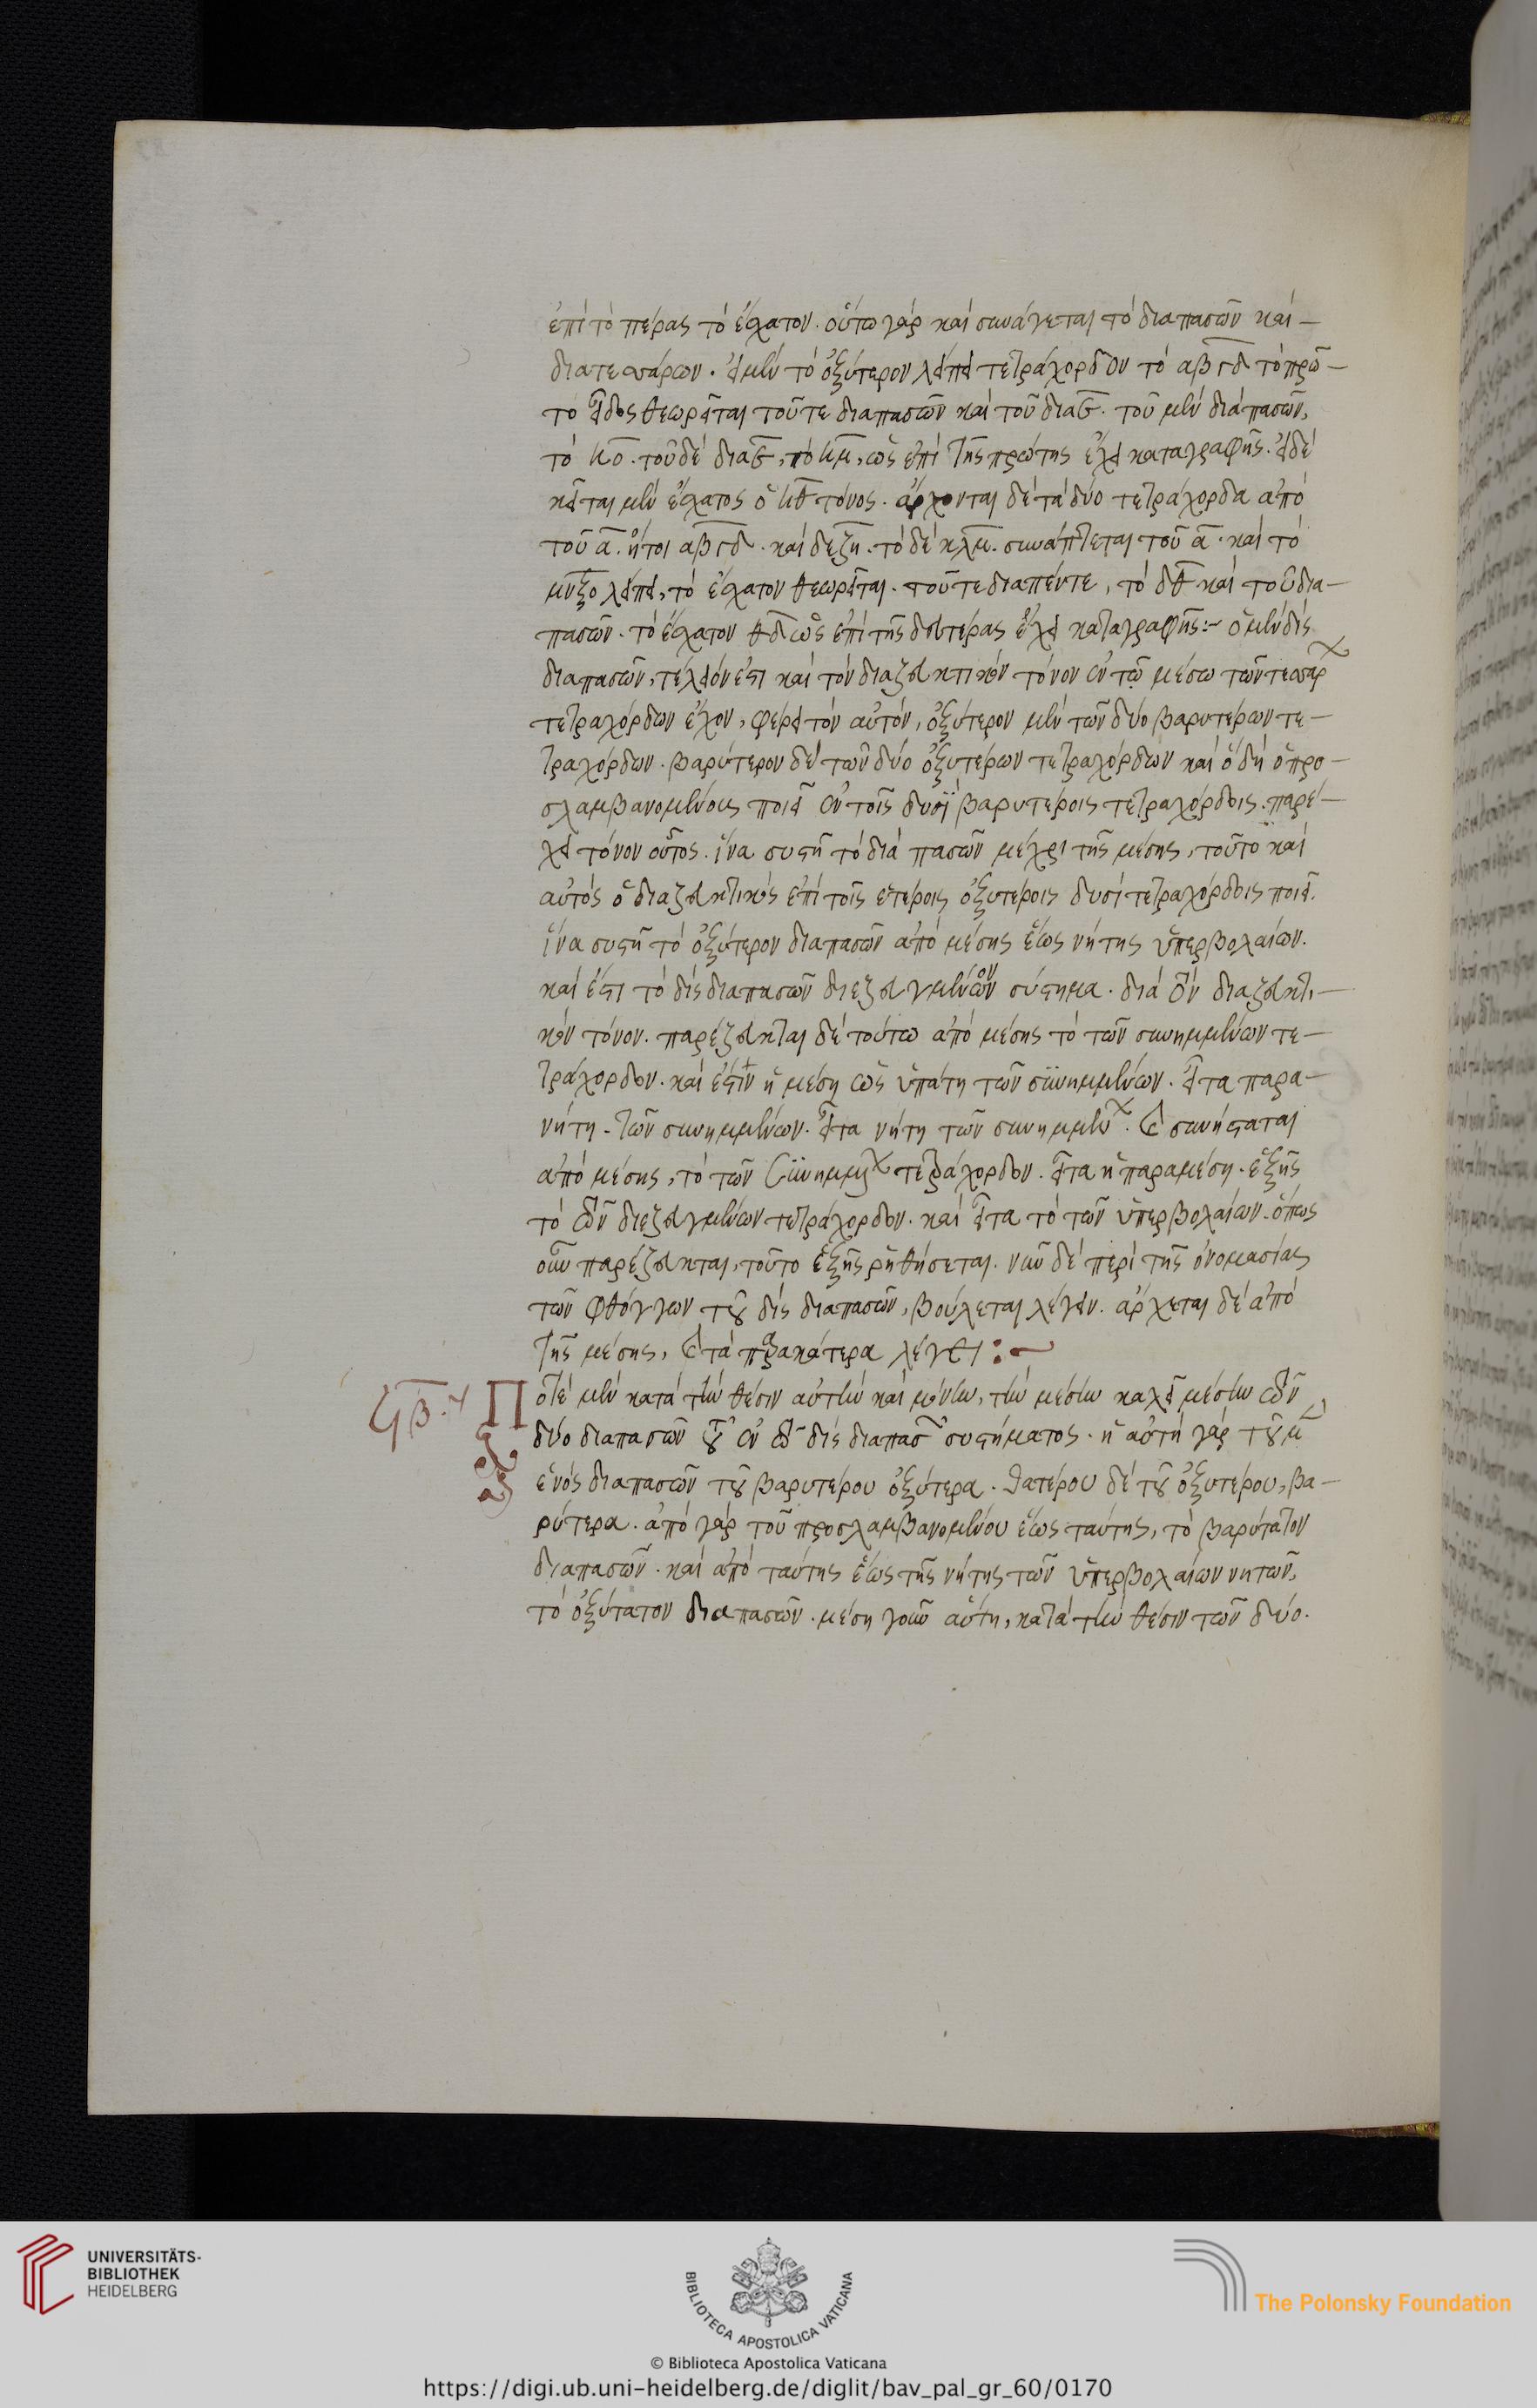 ἐπὶ τὸ πέρας τὸ ἔσχατον. οὕτω γὰρ καὶ συνάγεται τὸ διαπασῶν καὶ
διατεσσάρων. εἰ μὲν τὸ ὀξύτερον λείπει τετράχορδον τὸ αβγδ τὸ πρῶ-
το εἶδος θεωρεῖται τοῦ τε διαπασῶν καὶ τοῦ δια. τοῦ μὲν διαπασῶν,
τὸ κο. τοῦ δὲ δια, τὸ κμ, ὡς ἐπὶ τῆς πρώτης ἔχει καταγραφῆς. εἰ δὲ
κεῖται μὲν ἔσχατος ὁ τόνος. ἄρχονται δὲ τὰ δύο τετράχορδα ἀπὸ
τοῦ α. ἤτοι αβγδ. καὶ δεζη. τὸ δὲ κλμ. συνάπτεται τοῦ α. καὶ τὸ
μνξο λείπει, τὸ ἔσχατον θεωρεῖται. τοῦ τε διαπέντε, τὸ δθ καὶ τοῦ δια-
πασῶν. τὸ ἔσχατον ὡς ἐπὶ τῆς δευτέρας ἔχει καταγραφῆς:~ ὁ μὲν δὶς
διαπασῶν, τέλειόν ἐστι καὶ τὸν διαζευκτικὸν τόνον ἐν τῷ μέσω τῶν τεσσάρ
τετραχόρδων ἔχον, φέρει τὸν αὐτόν, ὀξύτερον μὲν τῶν δύο βαρυτέρων τε-
τραχόρδων. βαρύτερον δὲ τῶν δύο ὀξυτέρων τετραχόρδων καὶ ὃ δὴ ὁ προ-
σλαμβανομένους ποιεῖ ἐν τοῖς δυσὶ βαρυτέροις τετραχόρδοις. παρέ-
χει τόνον οὗτος. ἵνα συστῆ τὸ διὰ πασῶν μέχρι τῆς μέσης, τοῦτο καὶ
αὐτὸς ὁ διαζευκτικὸς ἐπὶ τοῖς ἑτέροις ὀξυτέροις δυσὶ τετραχόρδοις ποιεῖ.
ἵνα συστῆ τὸ ὀξύτερον διαπασῶν ἀπὸ μέσης ἕως νήτης ὑπερβολαίων.
καὶ ἔστι τὸ δὶς διαπασῶν διεζευγμένον σύστημα. διὰ τὸν διαζευκτι-
κὸν τόνον. παρέζευκται δὲ τούτω ἀπὸ μέσης τὸ τῶν συνημμένων τε-
τράχορδον. καὶ ἐστὶν ἡ μέση ὡς ὑπάτη τῶν συνημμένων. εἶτα παρα-
νήτη τῶν συνημμένων. εἶτα νήτη τῶν συνημμένων. καὶ συνήσταται
ἀπὸ μέσης, τὸ τῶν συνημμένων τετράχορδον. εἶτα ἡ παραμέση. ἑξῆς
τὸ τῶν διεζευγμένων τετράχορδον. καὶ εἶτα τὸ τῶν ὑπερβολαίων. ὅπως
οὖν παρέζευκται, τοῦτο ἑξῆς ῥηθήσεται. νῦν δὲ περὶ τῆς ὀνομασίας
τῶν φθόγγων τοῦ δὶς διαπασῶν, βούλεται λέγειν. ἄρχεται δὲ ἀπὸ
τῆς μέσης, καὶ τὰ παρακάτερα λέγει:~
Ποτὲ μὲν κατὰ τὴν θέσιν αὐτὴν καὶ μόνην, τὴν μέσην καλεῖ μέσην τῶν
δύο διαπασῶν τοῦ ἐν τῶ δὶς διαπασῶν συστήματος. ἡ αὐτὴ γὰρ τοῦ μὲν
ἑνὸς διαπασῶν τοῦ βαρυτέρου ὀξύτερα. θατέρου δὲ τοῦ ὀξυτέρου, βα-
ρύτερα. ἀπὸ γὰρ τοῦ προσλαμβανομένου ἕως ταύτης, τὸ βαρύτατον
διαπασῶν. καὶ ἀπὸ ταύτης ἕως τῆς νήτης τῶν ὑπερβολαίων νητῶν,
τὸ ὀξύτατον διαπασῶν. μέση γοῦν αὕτη, κατὰ τὴν θέσιν τῶν δύο.
UNIVERSITÄTS-
BIBLIOTHEK
HEIDELBERG
BIBLIOTECA APOSTOLICA VATICANA
The Polonsky Foundation
© Biblioteca Apostolica Vaticana
https://digi.ub.uni-heidelberg.de/diglit/bav_pal_gr_60/0170